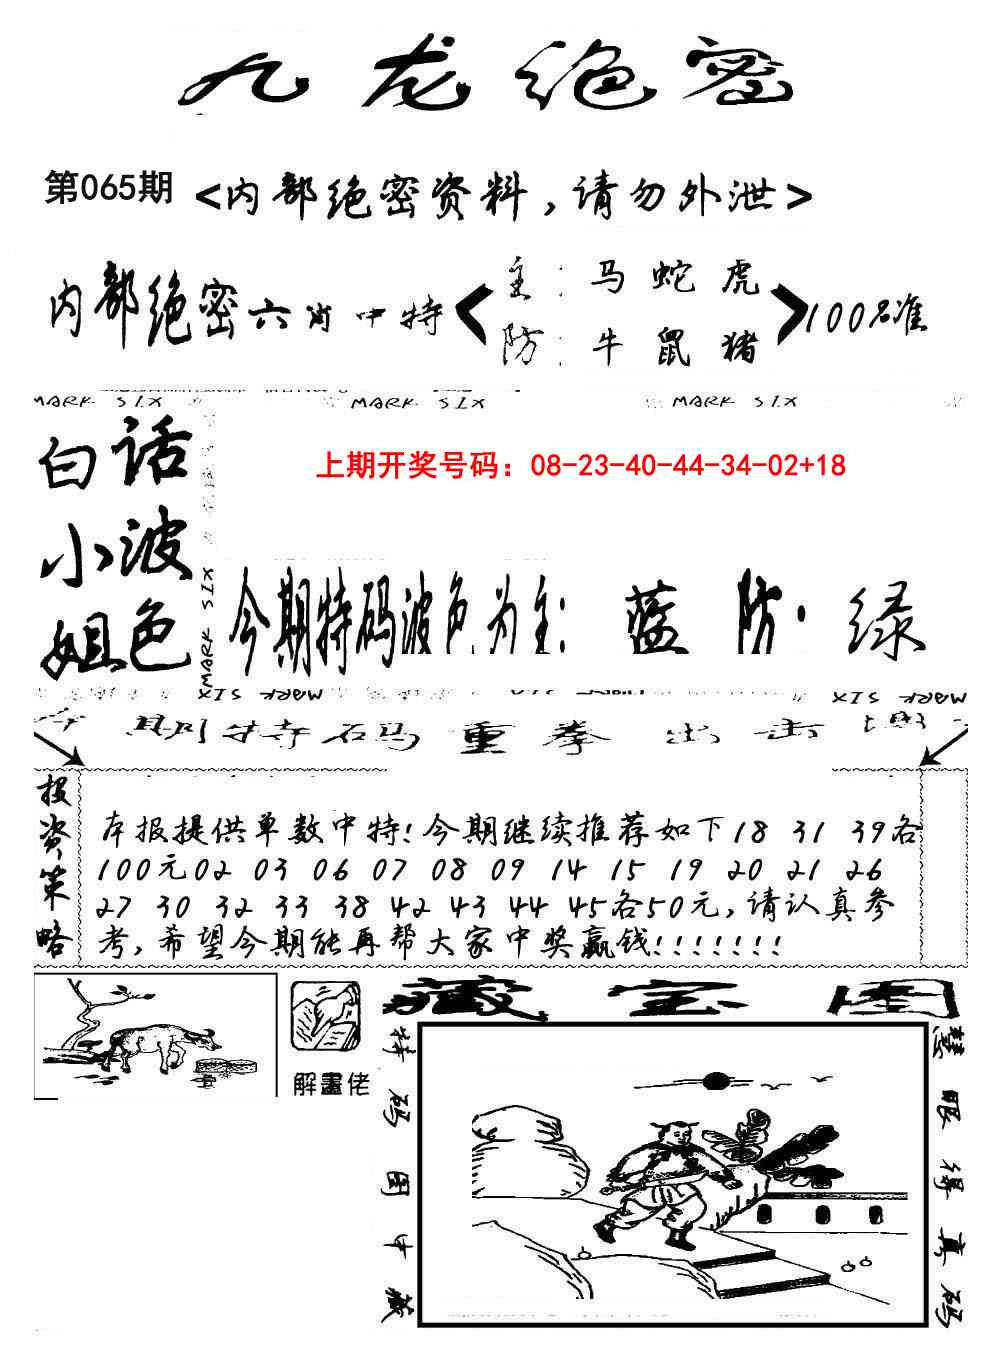 九龙绝密
第065期 <内部绝密资料，请勿外泄>
内部绝密六肖中特
主：马 蛇 虎
防：牛 鼠 猪
100%准
MARK SIX MARK SIX MARK SIX
白话
小波
姐色
MARK SIX MARK SIX
上期开奖号码：08-23-40-44-34-02+18
今期特码波色为主：蓝 防：绿
MARK SIX MARK SIX MARK SIX
期特码重拳出击
投资策略
本报提供单数中特！今期继续推荐如下18 31 39各
100元02 03 06 07 08 09 14 15 19 20 21 26
27 30 32 33 38 42 43 44 45各50元，请认真参
考，希望今期能再帮大家中奖赢钱！！！！！！！
解畫佬
藏宝图
特码图中藏
慧眼得真码